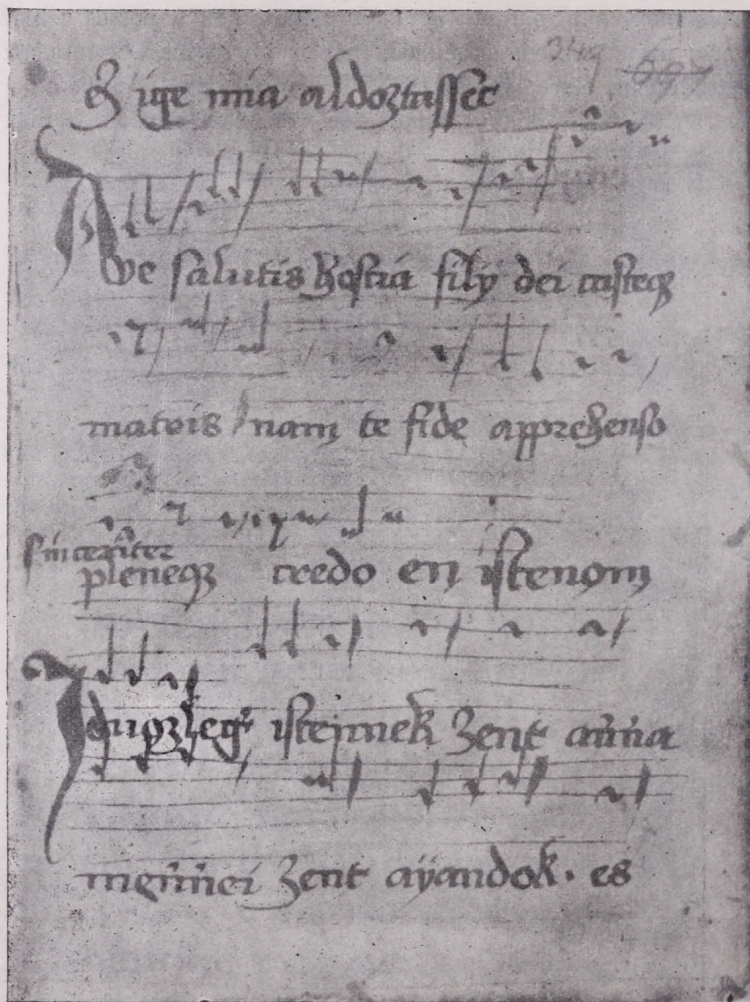 349 697
Eȝ ige mia aldoztassec
Ave salutis hostia filÿ dei casteqȝ
matris nam te fide apprehenso
sinceriter
pleneqȝ credo en istenom
Iduȯzlegÿ istejnnek zent ańńa
meńńei zent aÿandok · es